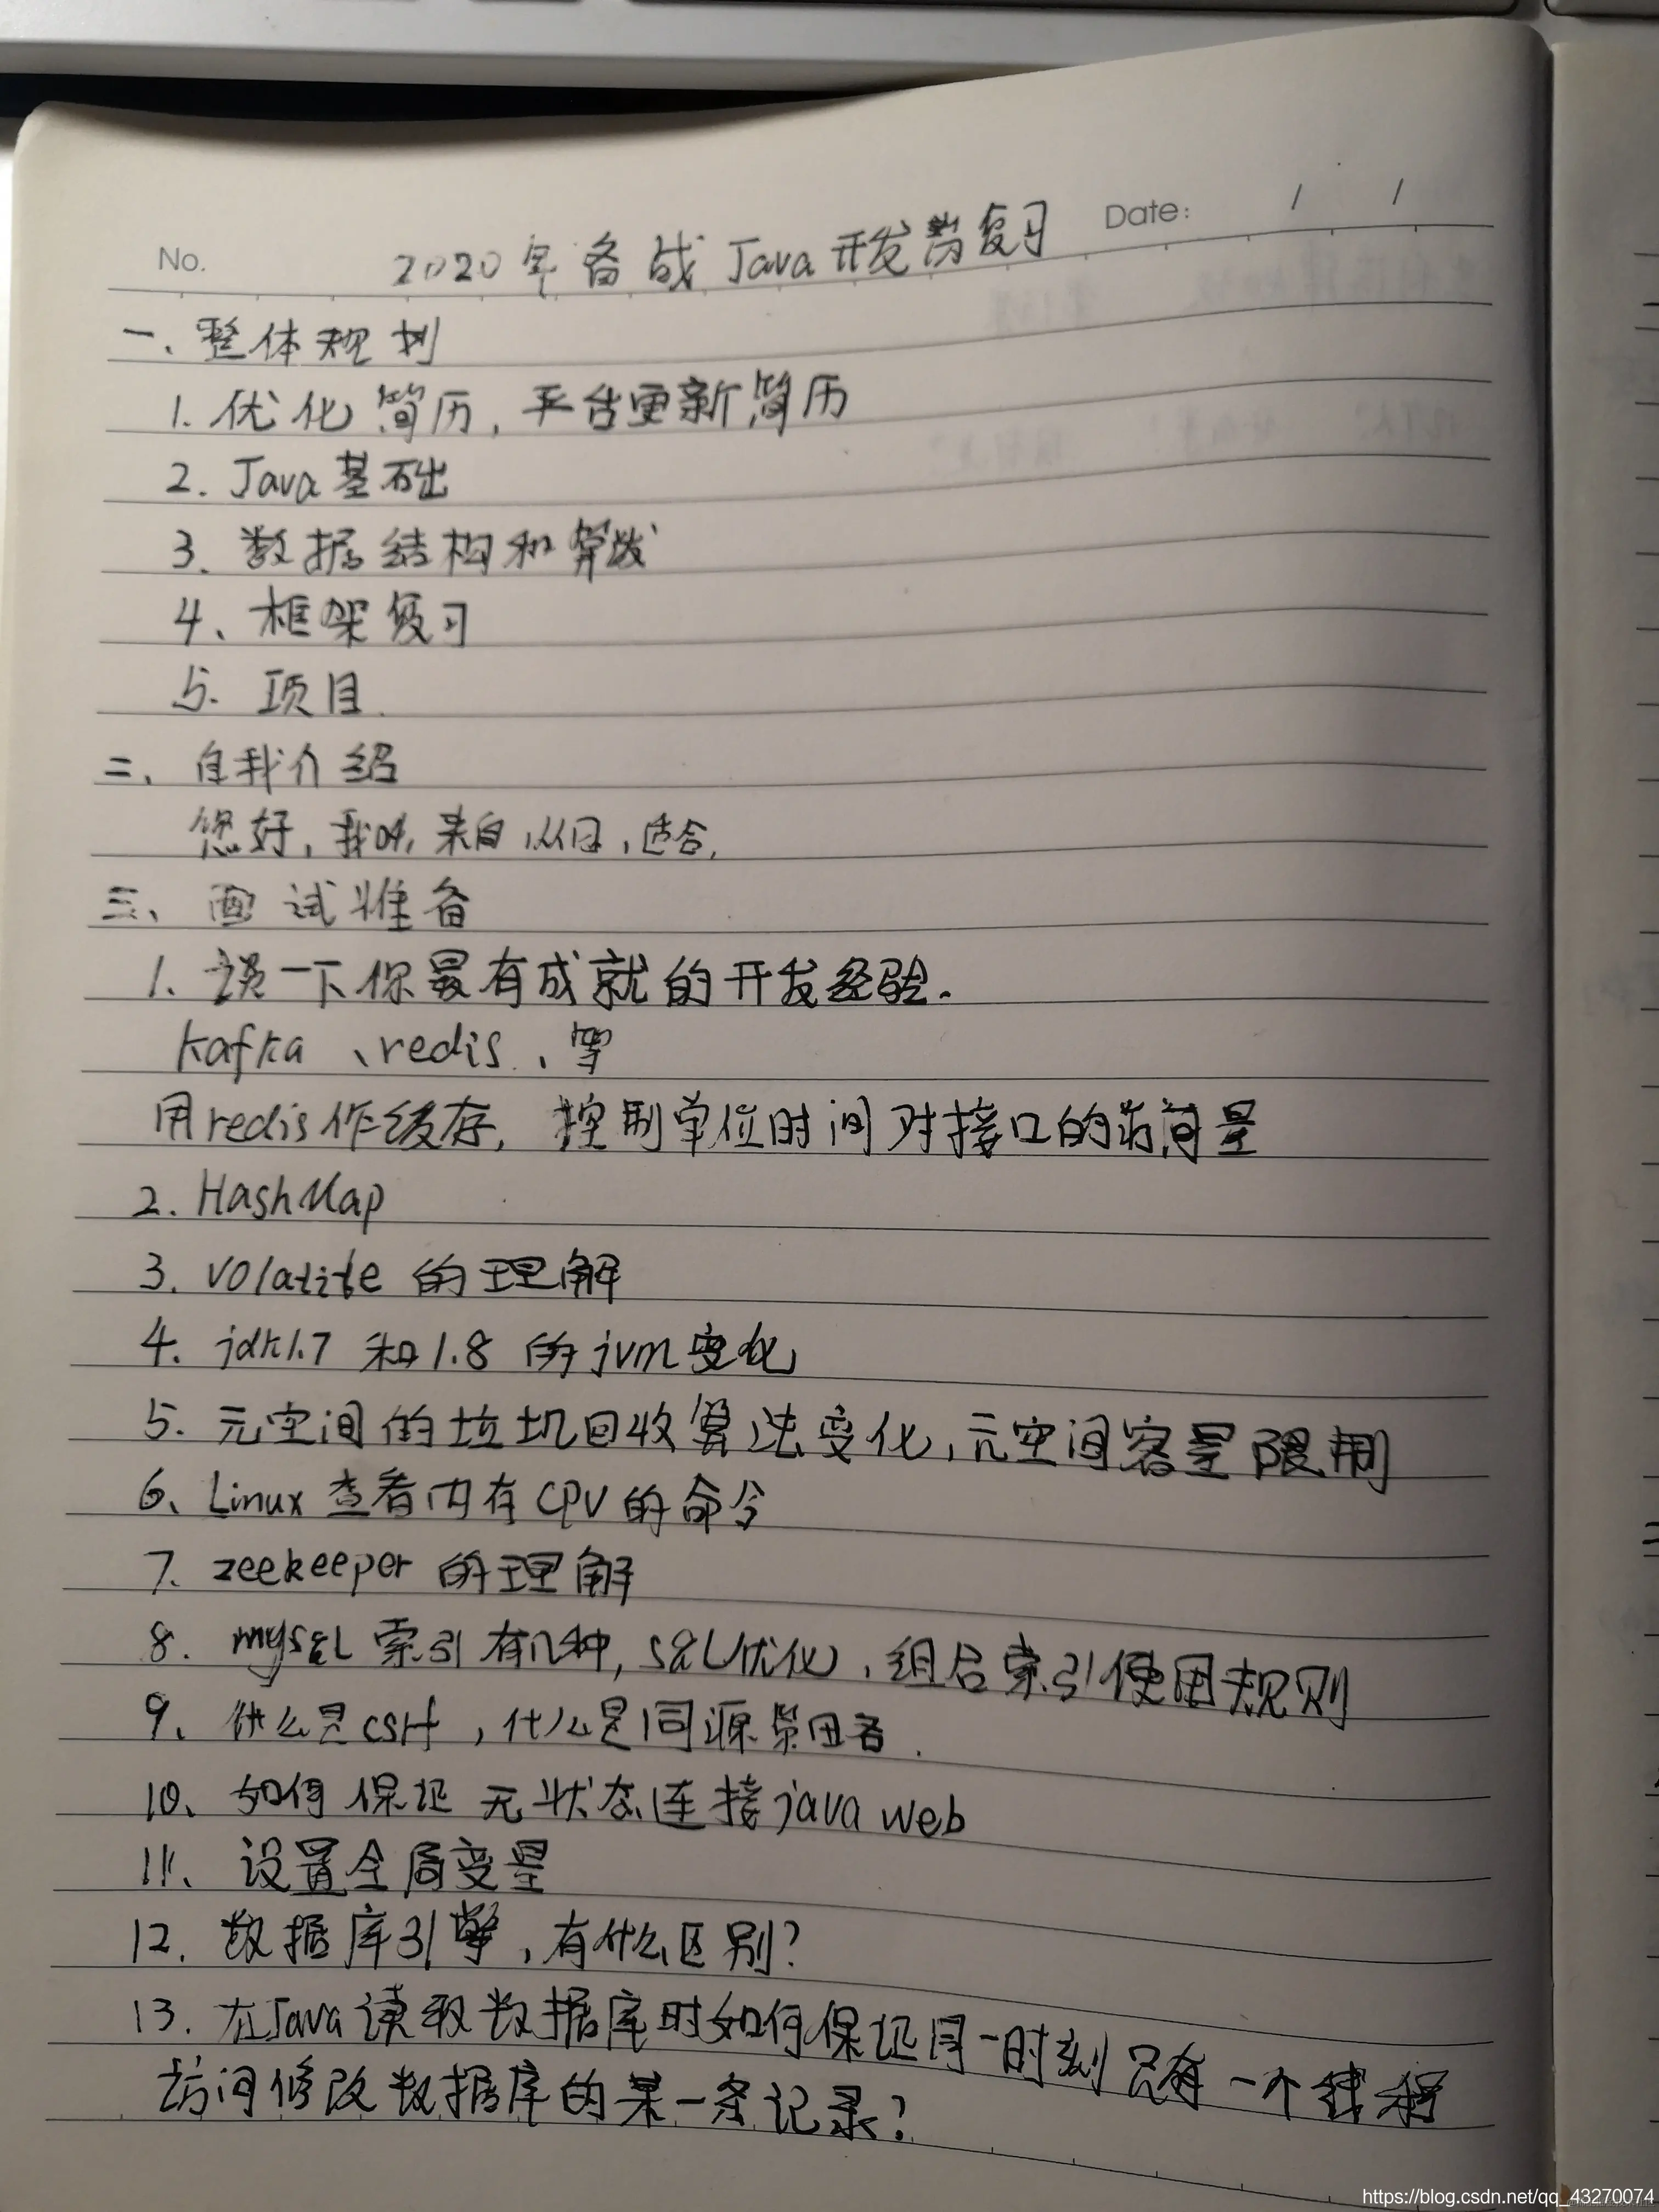 No.
Date: / /
2020年备战Java开发岗复习
一、整体规划
1. 优化简历，平台更新简历
2. Java基础
3. 数据结构和算法
4、框架复习
5. 项目
二、自我介绍
您好，我叫，来自，从，适合，
三、面试准备
1. 谈一下你最有成就的开发经验.
kafka、redis、等
用redis作缓存，控制单位时间对接口的访问量
2. HashMap
3. volatile 的理解
4. jdk1.7 和1.8 的jvm变化
5. 元空间的垃圾回收算法变化，元空间容量限制
6、Linux 查看内存CPU的命令
7. zeekeeper 的理解
8. mysql 索引有几种，SQL优化，组合索引使用规则
9、什么是csrf，什么是同源策略.
10、如何保证无状态连接java web
11、设置全局变量
12. 数据库引擎，有什么区别？
13. 在Java读取数据库时如何保证同一时刻只有一个线程
访问修改数据库的某一条记录？
https://blog.csdn.net/qq_43270074